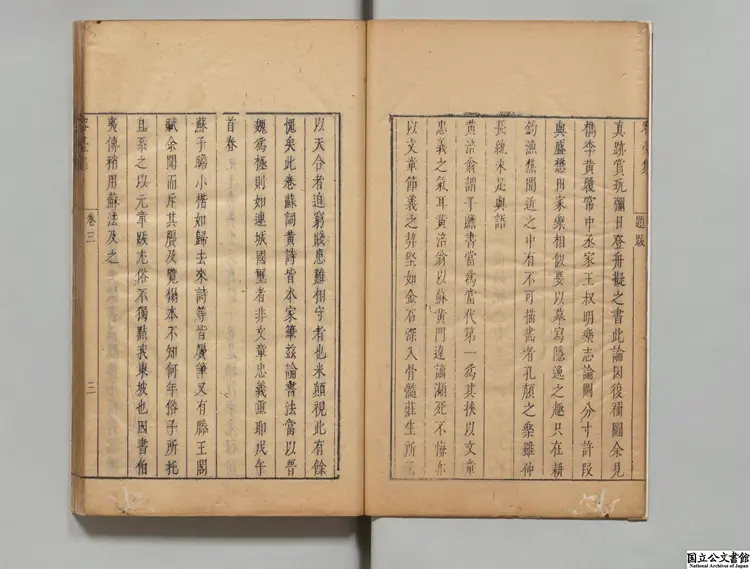 題跋
真跡賞玩彌日登舟擬之書此論因復補圖余見
檇李黃履常中丞家王叔明樂志論圖分寸許段
輿盛懋用家樂相似要以摹寫隱逸之趣只在耕
釣漁樵間近之中有不可描畫者孔顏之樂雖仲
長統未足與語
黃涪翁謂子瞻書當為當代第一為其挾以文章
忠義之氣耳黃涪翁以蘇黃門違謫瀕死不悔亦
以文章節義之契堅如金石深入骨髓莊生所
以天合者迫窮禍患難相守者也米顛視此有餘
愧矣此卷蘇詞黃詩皆本家筆茲論書法當以晉
魏為極則如連城國璽者非文章忠義重耶戊午
首春
蘇子瞻小楷如歸去來詩等皆贗筆又有滕王閣
賦余聞而斥其贗及覽搨本不知何年俗子所托
且系之以元章跋尤俗不獨點我東坡也因書伯
夷傳稍用蘇法及之
卷三
三
国立公文書館
National Archives of Japan